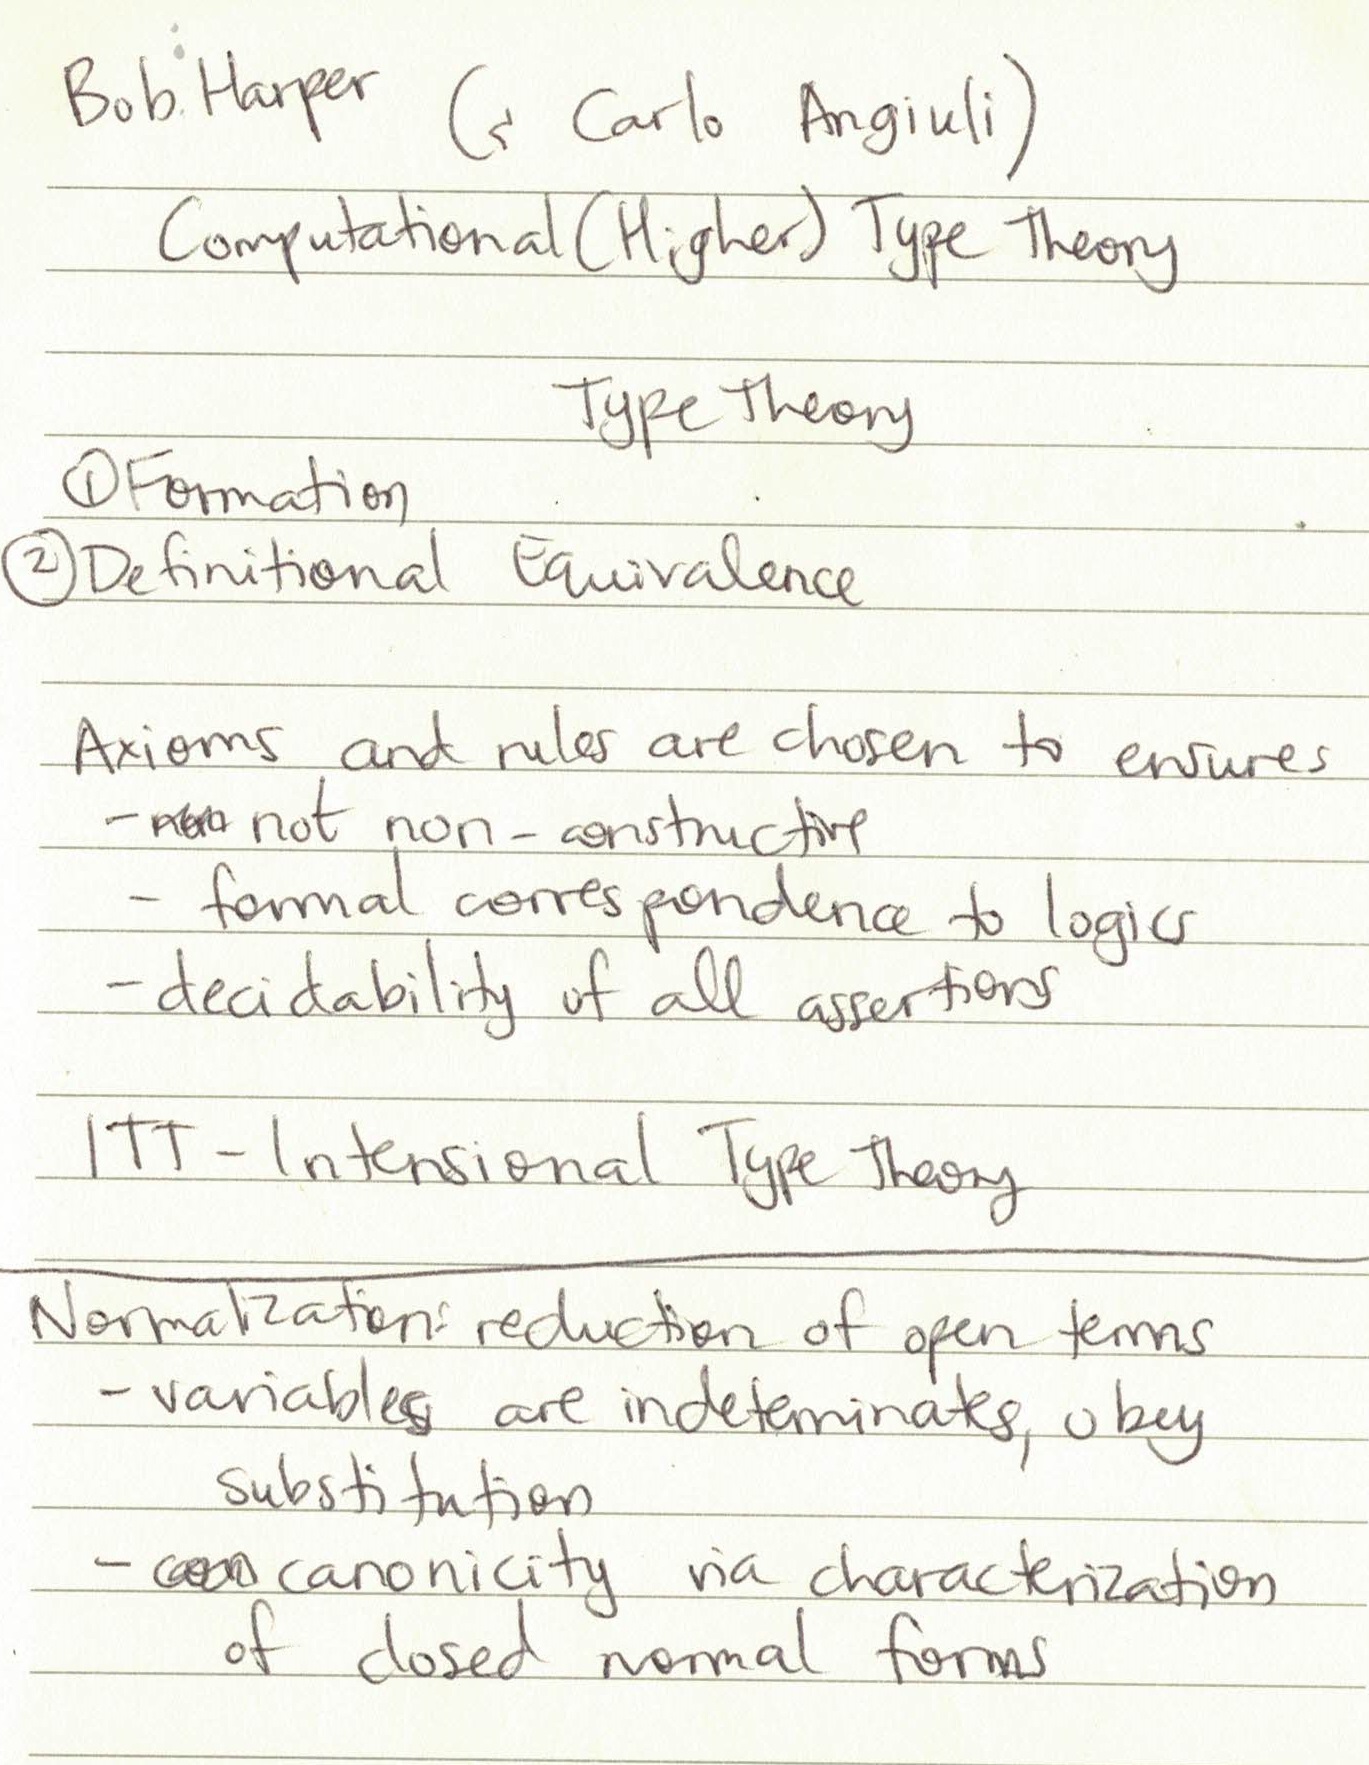 Bob Harper (& Carlo Angiuli)
Computational (Higher) Type Theory
Type Theory
① Formation
② Definitional Equivalence
Axioms and rules are chosen to ensures
- not non-constructive
- formal correspondence to logics
- decidability of all assertions
ITT - Intensional Type Theory
Normalization: reduction of open terms
- variables are indeterminates, obey
substitution
- canonicity via characterization
of closed normal forms